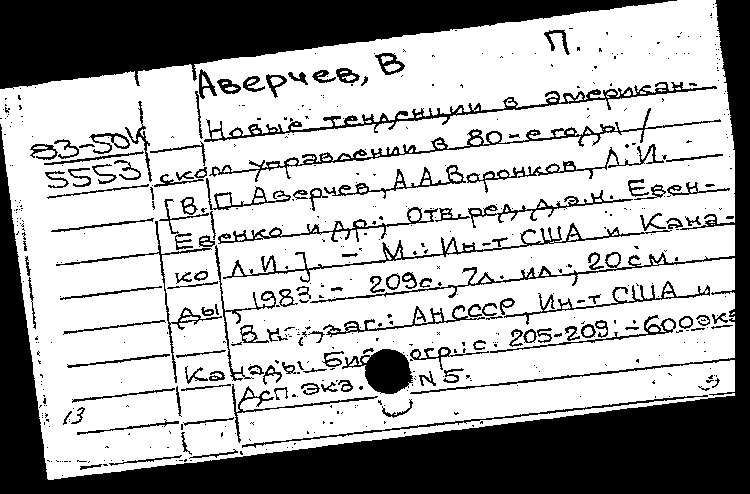 Аверчев, В П.
Новые тенденции в американ-
83-50К
ском управлении в 80-е годы /
5553
[В.П. Аверчев, А.А. Воронков, Л.И.
Евенко и др.; Отв. ред. д.э.н. Евен-
ко Л.И.]. - М.: Ин-т США и Кана-
ды, 1983. - 209с., 7л. ил.; 20 см.
В заг.: АН СССР, Ин-т США и
Канады. Биб огр.: с. 205-209. - 600экз
Дсп. экз. N 5.
13